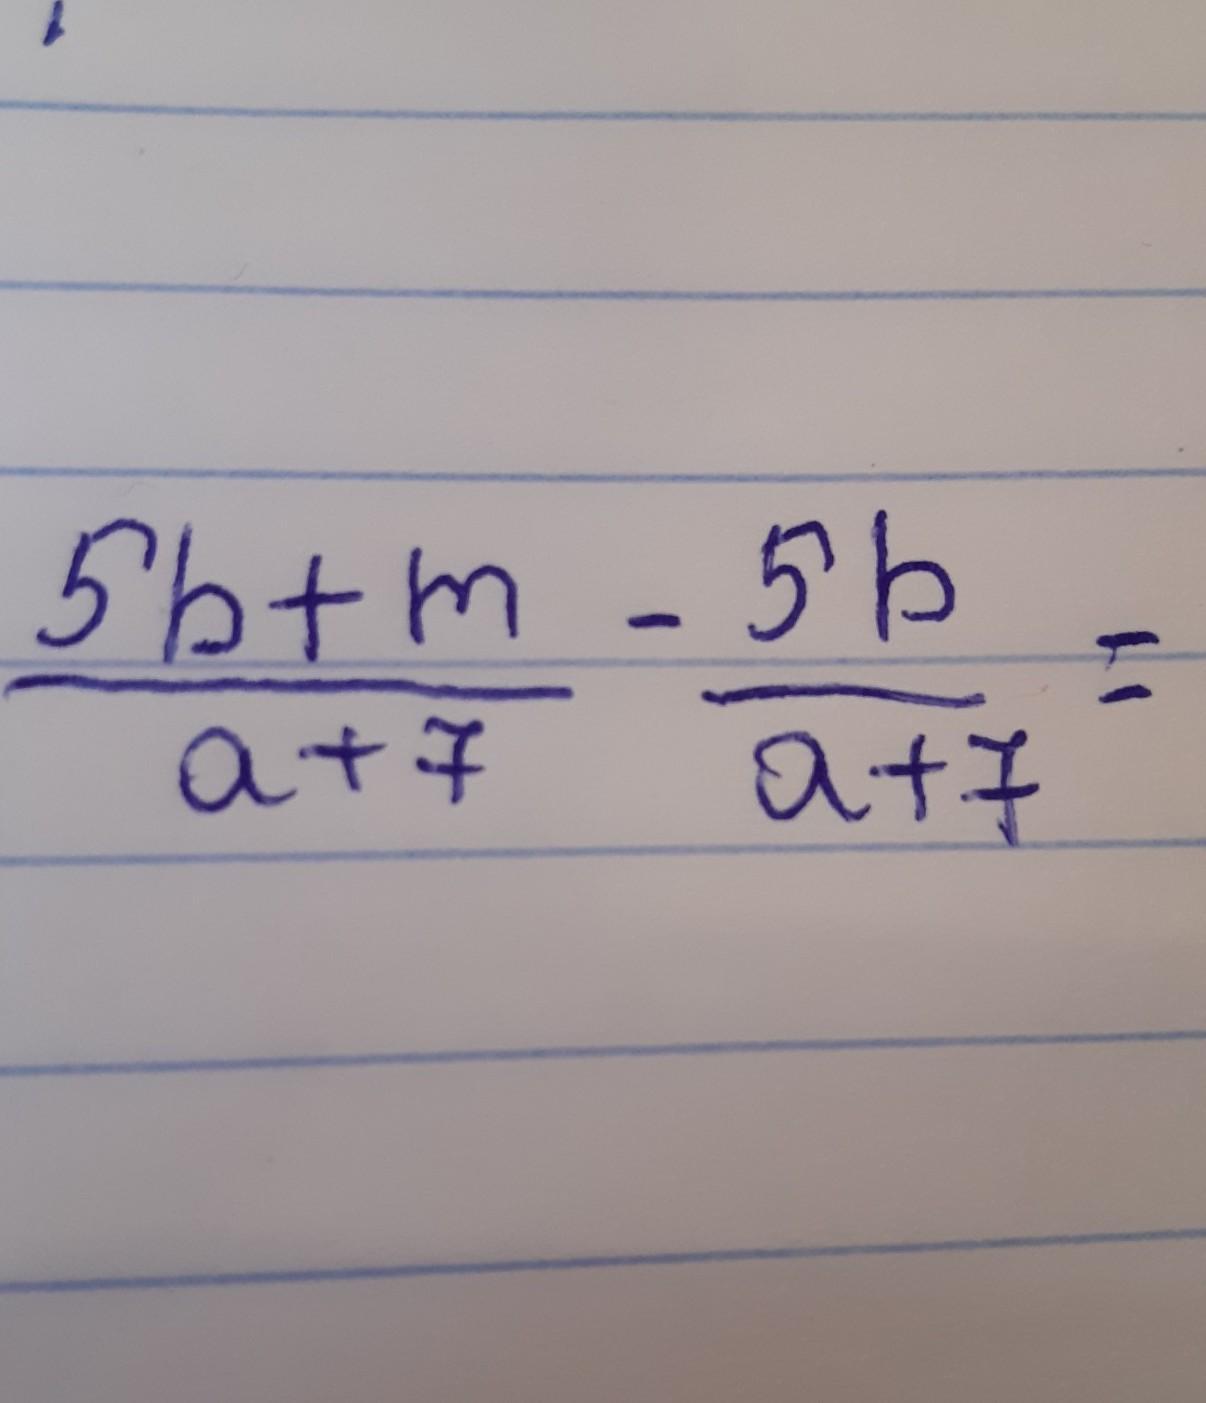 5b+m/a+7 - 5b/a+7 =